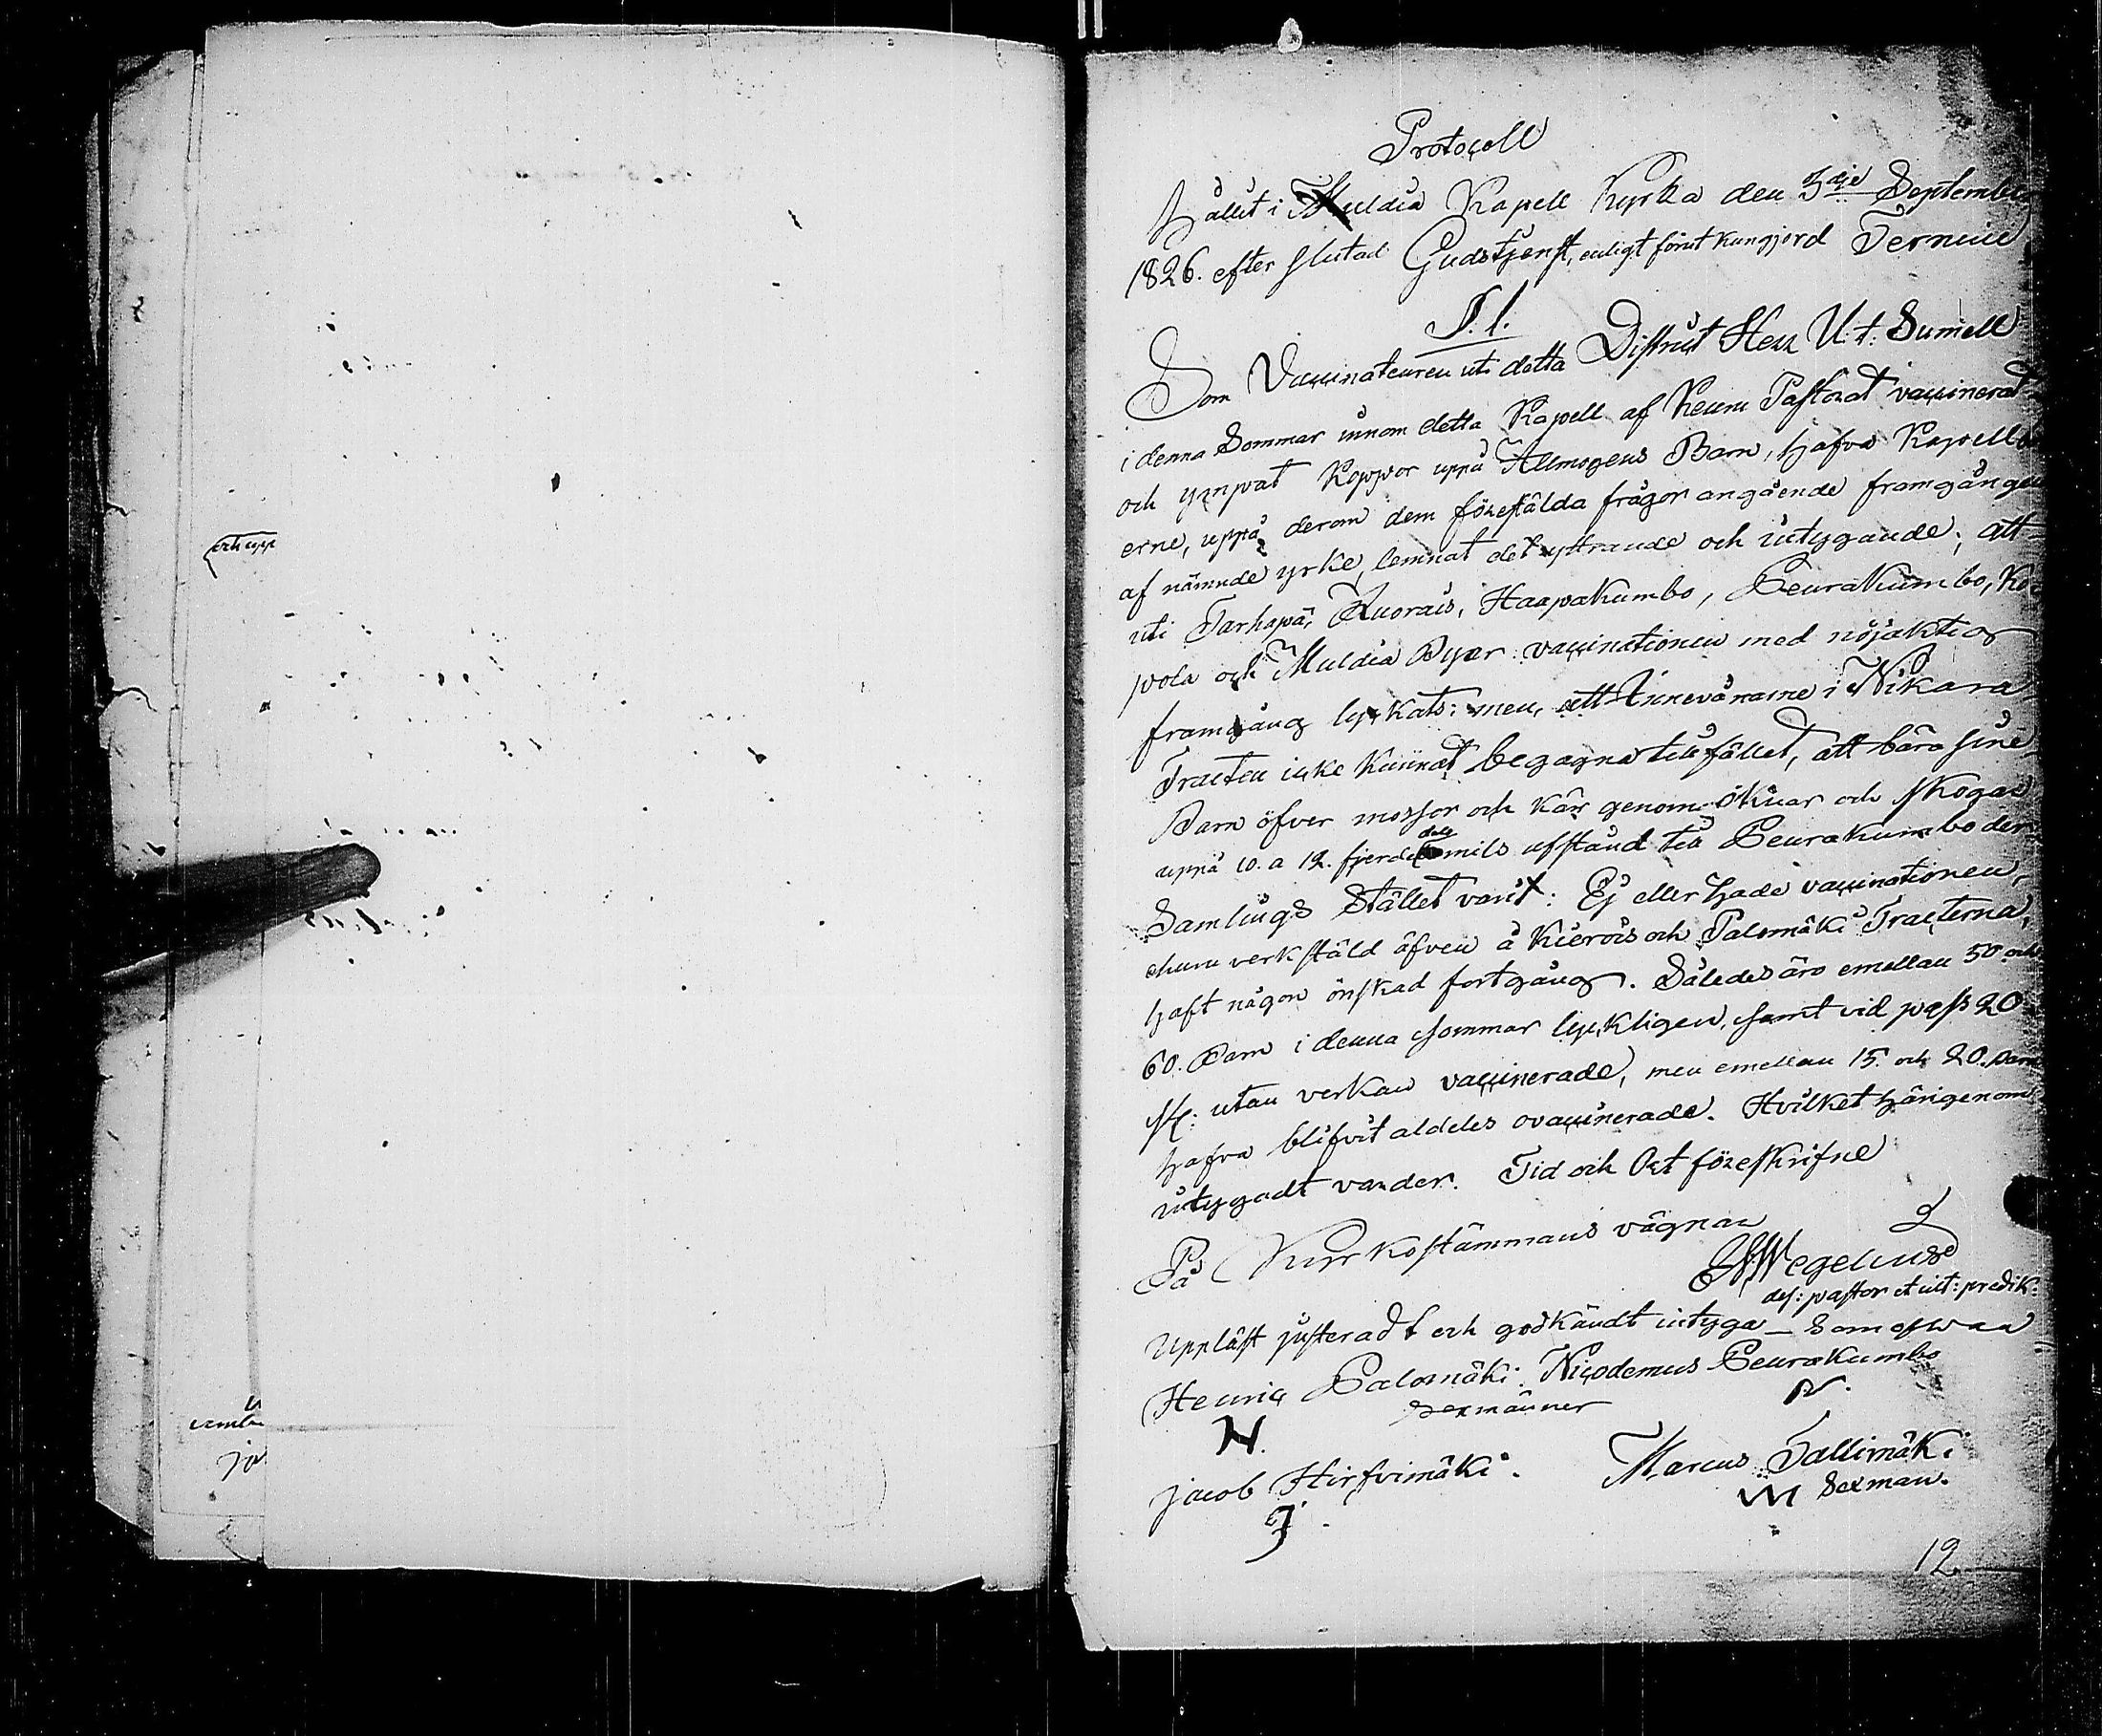 Protocoll
hållit i Muldia Kapell Kyrka den 3dje September
1826. efter slutad Gudstjenst, enligt förut kungjord Termin
S. 1.
Som Vaccinateuren uti detta District Herr U. t. Sumell
i denna Sommar innom detta Kapell af Keuru Pastorat vaccinerat
och ympat Koppor uppå Allmogens Barn, hafva Kapellbo
erne, uppå derom dem föreställda frågor angående framgången
af nämnde yrke, lemnat det yttrande och intygande; att
uti Tarhapä, Ruorais, Haapakumbo, Peurakumbo, Ko-
pola och Muldia Byar vaccinationen med nöjaktig
framgång lyckats: men, att Innevånarne i Nikara
Tracten icke kunnat begagna tillfället, att bära sine
Barn öfver mossor och kärr genom öknar och skogar
uppå 10. a 12. fjerdedels mils afstånd till Peurakumbo der
Samlings Stället varit: Ej eller hade vaccinationen,
ehuru verkställd äfven å Kiérois och Palomäki Tracterna,
haft någon önskad fortgång. Således äro emellan 50 och
60. Barn i denna sommar lyckligen, samt vid pass 20
st: utan verkan vaccinerade, men emellan 15. och 20. Barn
hafva blifvit aldeles ovaccinerade. Hvilket härigenom
intygadt varder. Tid och Ort föreskrifne
På Kyrkostämmans vägnar
Wegelius
def: pastor et ult: predik:
Uppläst justeradt och godkändt intyga
Henric Palomäki. Nicodemus Peurakumbo
sexmänner
N.
N.
Jacob Hirfvimäki. Marcus Tallimäki
J.
M Sexman.
12.
och upp